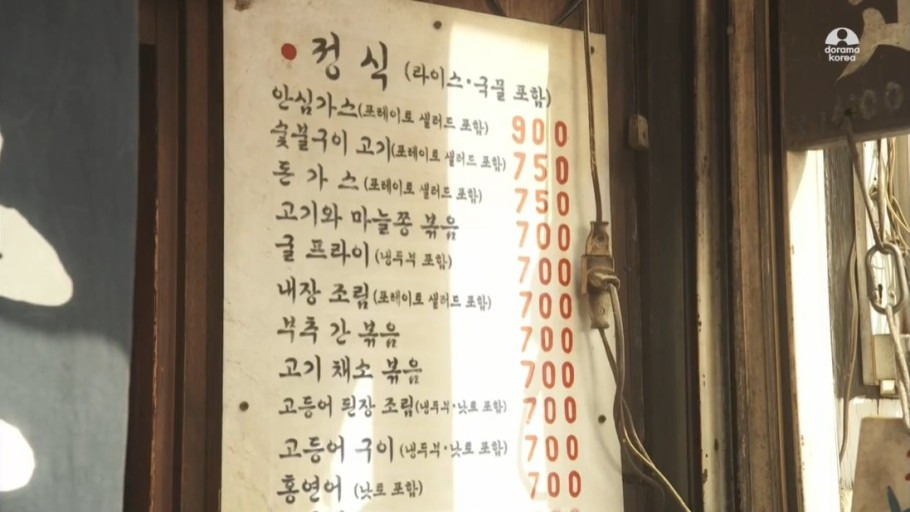 dorama
korea
• 정 식 (라이스·국물 포함)
안심가스(포테이토 샐러드 포함) 900
숯불구이 고기(포테이토 샐러드 포함) 750
돈 가 스 (포테이토 샐러드 포함) 750
고기와 마늘쫑 볶음 700
굴 프라이 (냉두부 포함) 700
내장 조림 (포테이토 샐러드 포함) 700
부추 간 볶음 700
고기 채소 볶음 700
고등어 된장 조림(냉두부·낫토 포함) 700
고등어 구이 (냉두부·낫토 포함) 700
홍연어 (낫토 포함) 700